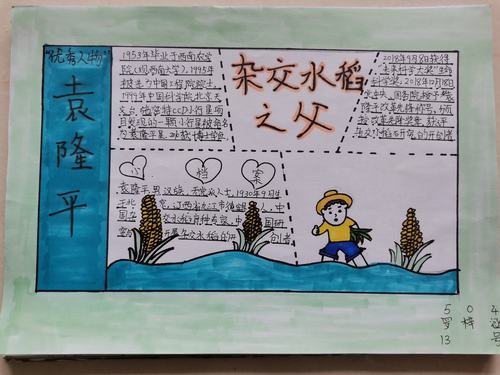 "优秀人物"
袁隆平
1953年毕业于西南农学
院(现西南大学)。1995年
被选为中国工程院院士。
1999年中国科学院北京天
文台施密特CCD小行星项
目发现的一颗小行星被命名
为袁隆平星
杂交水稻
之父
2018年9月8日获得
"未来科学大奖"生命
科学奖。2018年12月18日
党中央、国务院授予袁
隆平改革先锋称号,
改革先锋奖章,获评
杂交水稻研究的开创者
小档案
袁隆平,男,汉族,无党派人士,1930年9月生
于北 ,江西省九江市德 人,中
国杂交水稻育种专家,中国研
究 发展杂交水稻的开创者
504
罗梓涵
13号